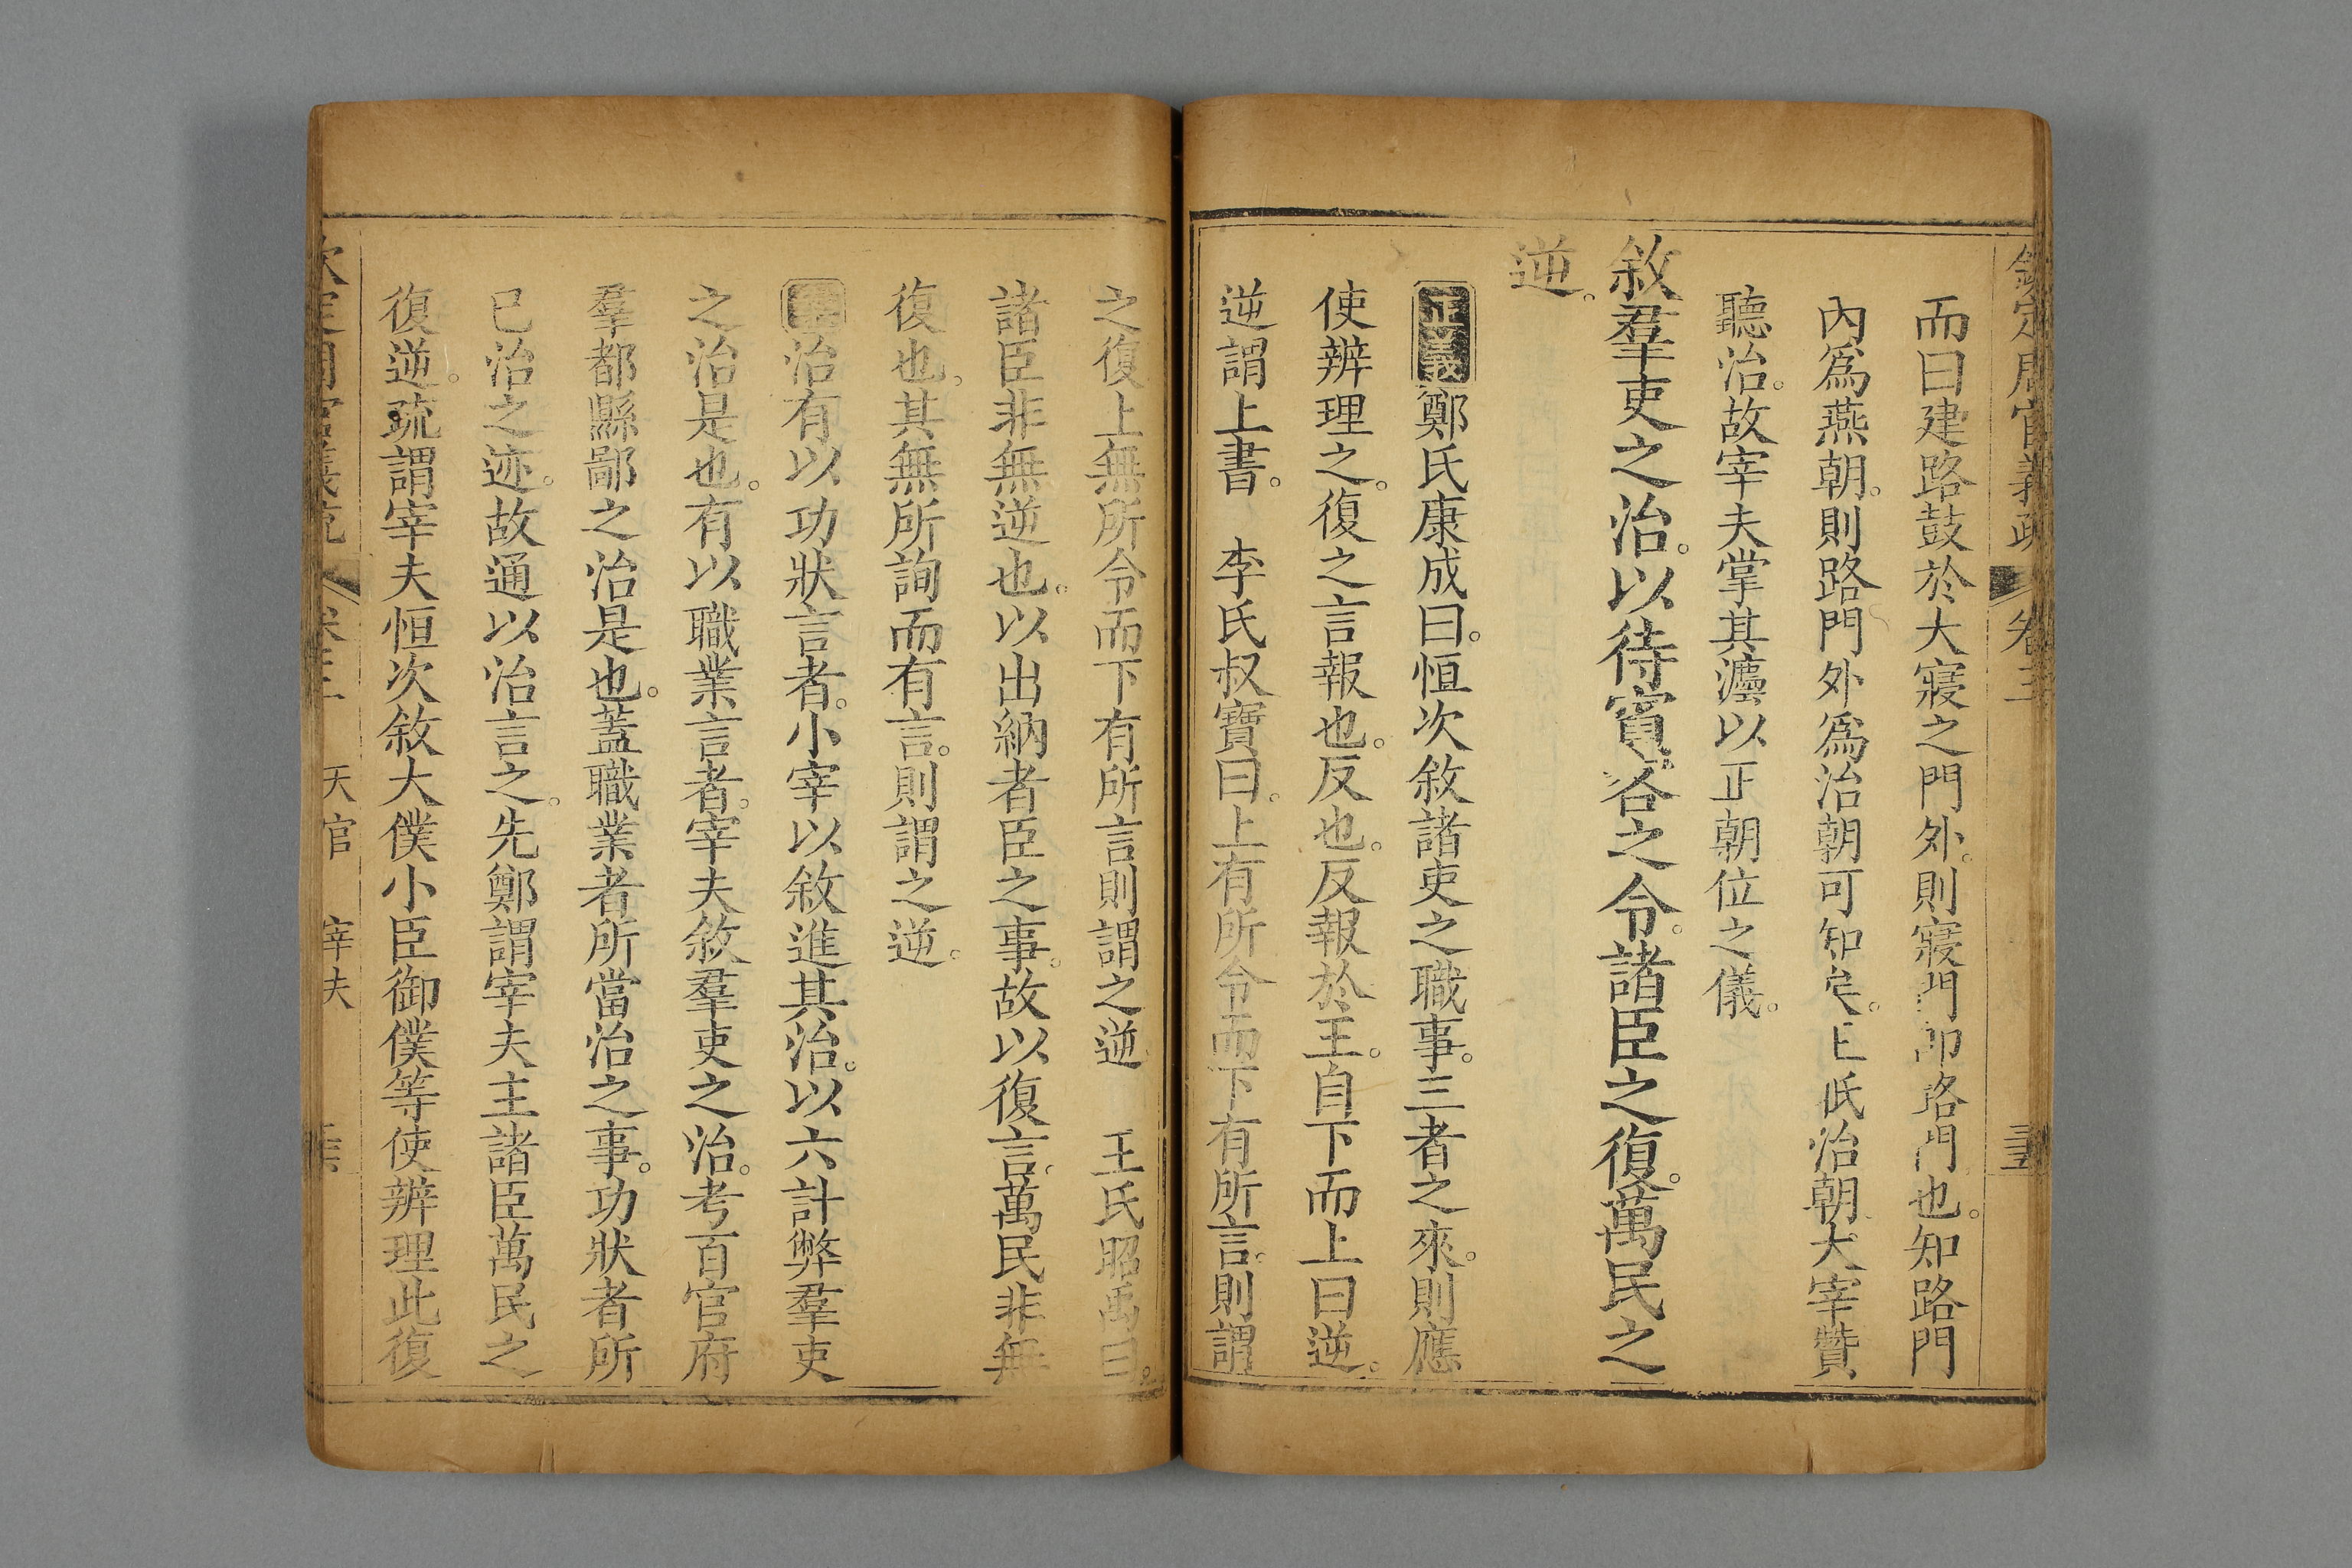 欽定周官義疏 卷三
而曰建路鼓於大寢之門外。則寢門卽路門也。知路門
內爲燕朝。則路門外爲治朝可知矣。且眡治朝。大宰贊
聽治。故宰夫掌其灋以正朝位之儀。
敘羣吏之治。以待賓客之令。諸臣之復。萬民之
逆。
正義鄭氏康成曰。恒次敘諸吏之職事。三者之來。則應
使辨理之。復之言報也。反也。反報於王。自下而上曰逆。
逆謂上書。 李氏叔寶曰。上有所令而下有所言。則謂
之復上無所令而下有所言則謂之逆 王氏昭禹曰。
諸臣非無逆也。以出納者臣之事。故以復言。萬民非無
復也。其無所詢而有言。則謂之逆。
治有以功狀言者。小宰以敘進其治。以六計弊羣吏
之治是也。有以職業言者。宰夫敘羣吏之治。考百官府
羣都縣鄙之治是也。蓋職業者所當治之事。功狀者所
已治之迹。故通以治言之。先鄭謂宰夫主諸臣萬民之
復逆。疏謂宰夫恒次敘大僕小臣御僕等使辨理此復
欽定周官義疏 卷三 天官 宰夫